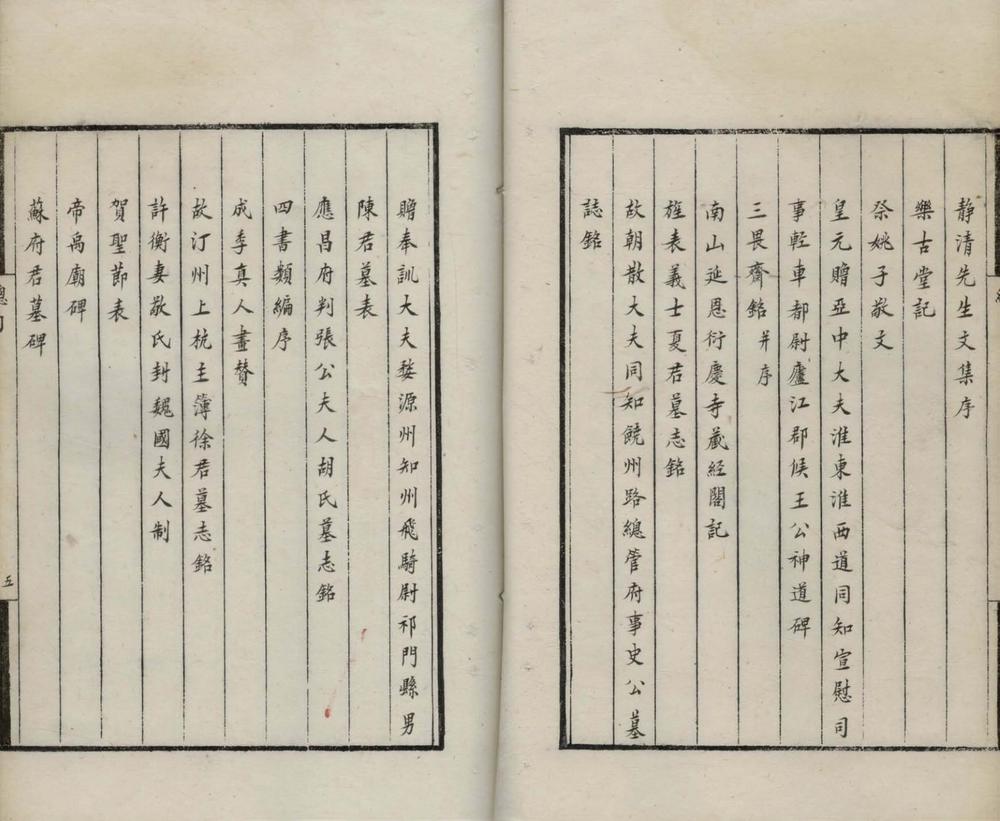 静清先生文集序
樂古堂記
祭姚子敬文
皇元贈亞中大夫淮東淮西道同知宣慰司
事輕車都尉廬江郡候王公神道碑
三畏齋銘并序
南山延恩衍慶寺藏經閣記
旌表義士夏君墓志銘
故朝散大夫同知饒州路總管府事史公墓
誌銘
贈奉訓大夫婺源州知州飛騎尉祁門縣男
陳君墓表
應昌府判張公夫人胡氏墓志銘
四書類編序
成季真人畫贊
故汀州上杭主簿徐君墓志銘
許衡妻敬氏封魏國夫人制
賀聖節表
帝禹廟碑
蘇府君墓碑
五